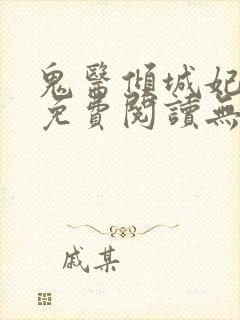 鬼醫傾城妃
免費閱讀無
戚某